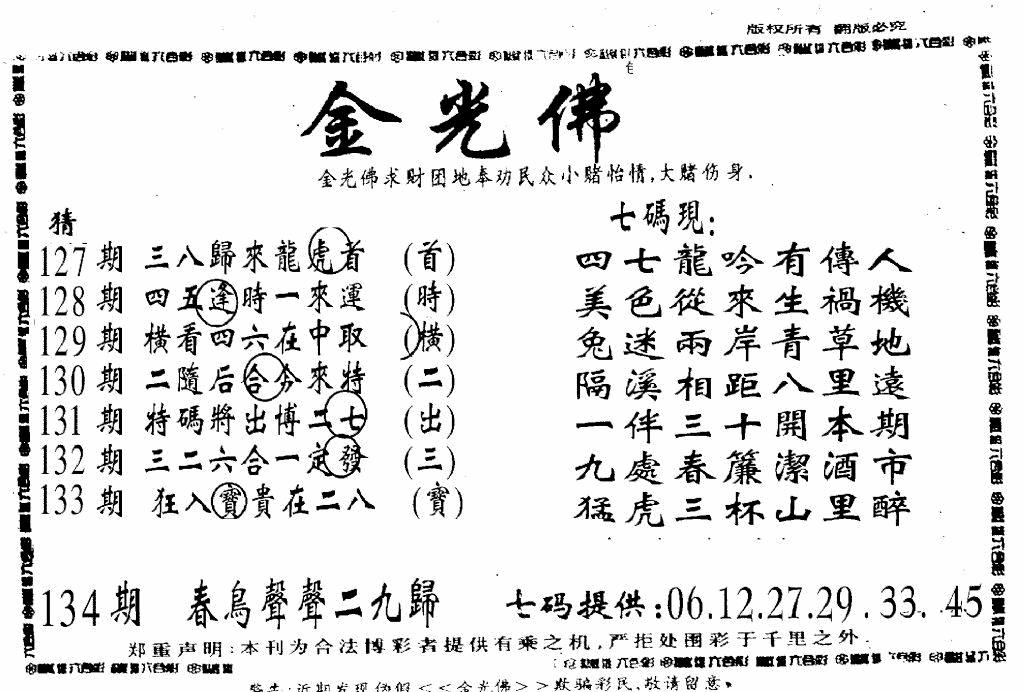 版权所有 翻版必究
金光佛
金光佛求财团地奉劝民众小赌怡情,大赌伤身.
猜
127期 三八歸來龍虎首 (首)
128期 四五逢時一來運 (時)
129期 橫看四六在中取 (橫)
130期 二隨后合夯來特 (二)
131期 特碼將出博二七 (出)
132期 三二六合一定發 (三)
133期 狂入寶貴在二八 (寶)
七碼現:
四七龍吟有傳人
美色從來生禍機
兔迷兩岸青草地
隔溪相距八里遠
一伴三十開本期
九處春簾潔酒市
猛虎三杯山里醉
134期 春鳥聲聲二九歸 七码提供:06.12.27.29.33.45
郑重声明:本刊为合法博彩者提供有乘之机,严拒处围彩于千里之外.
警告:近期发现伪假<<金光佛>>欺骗彩民,敬请留意。